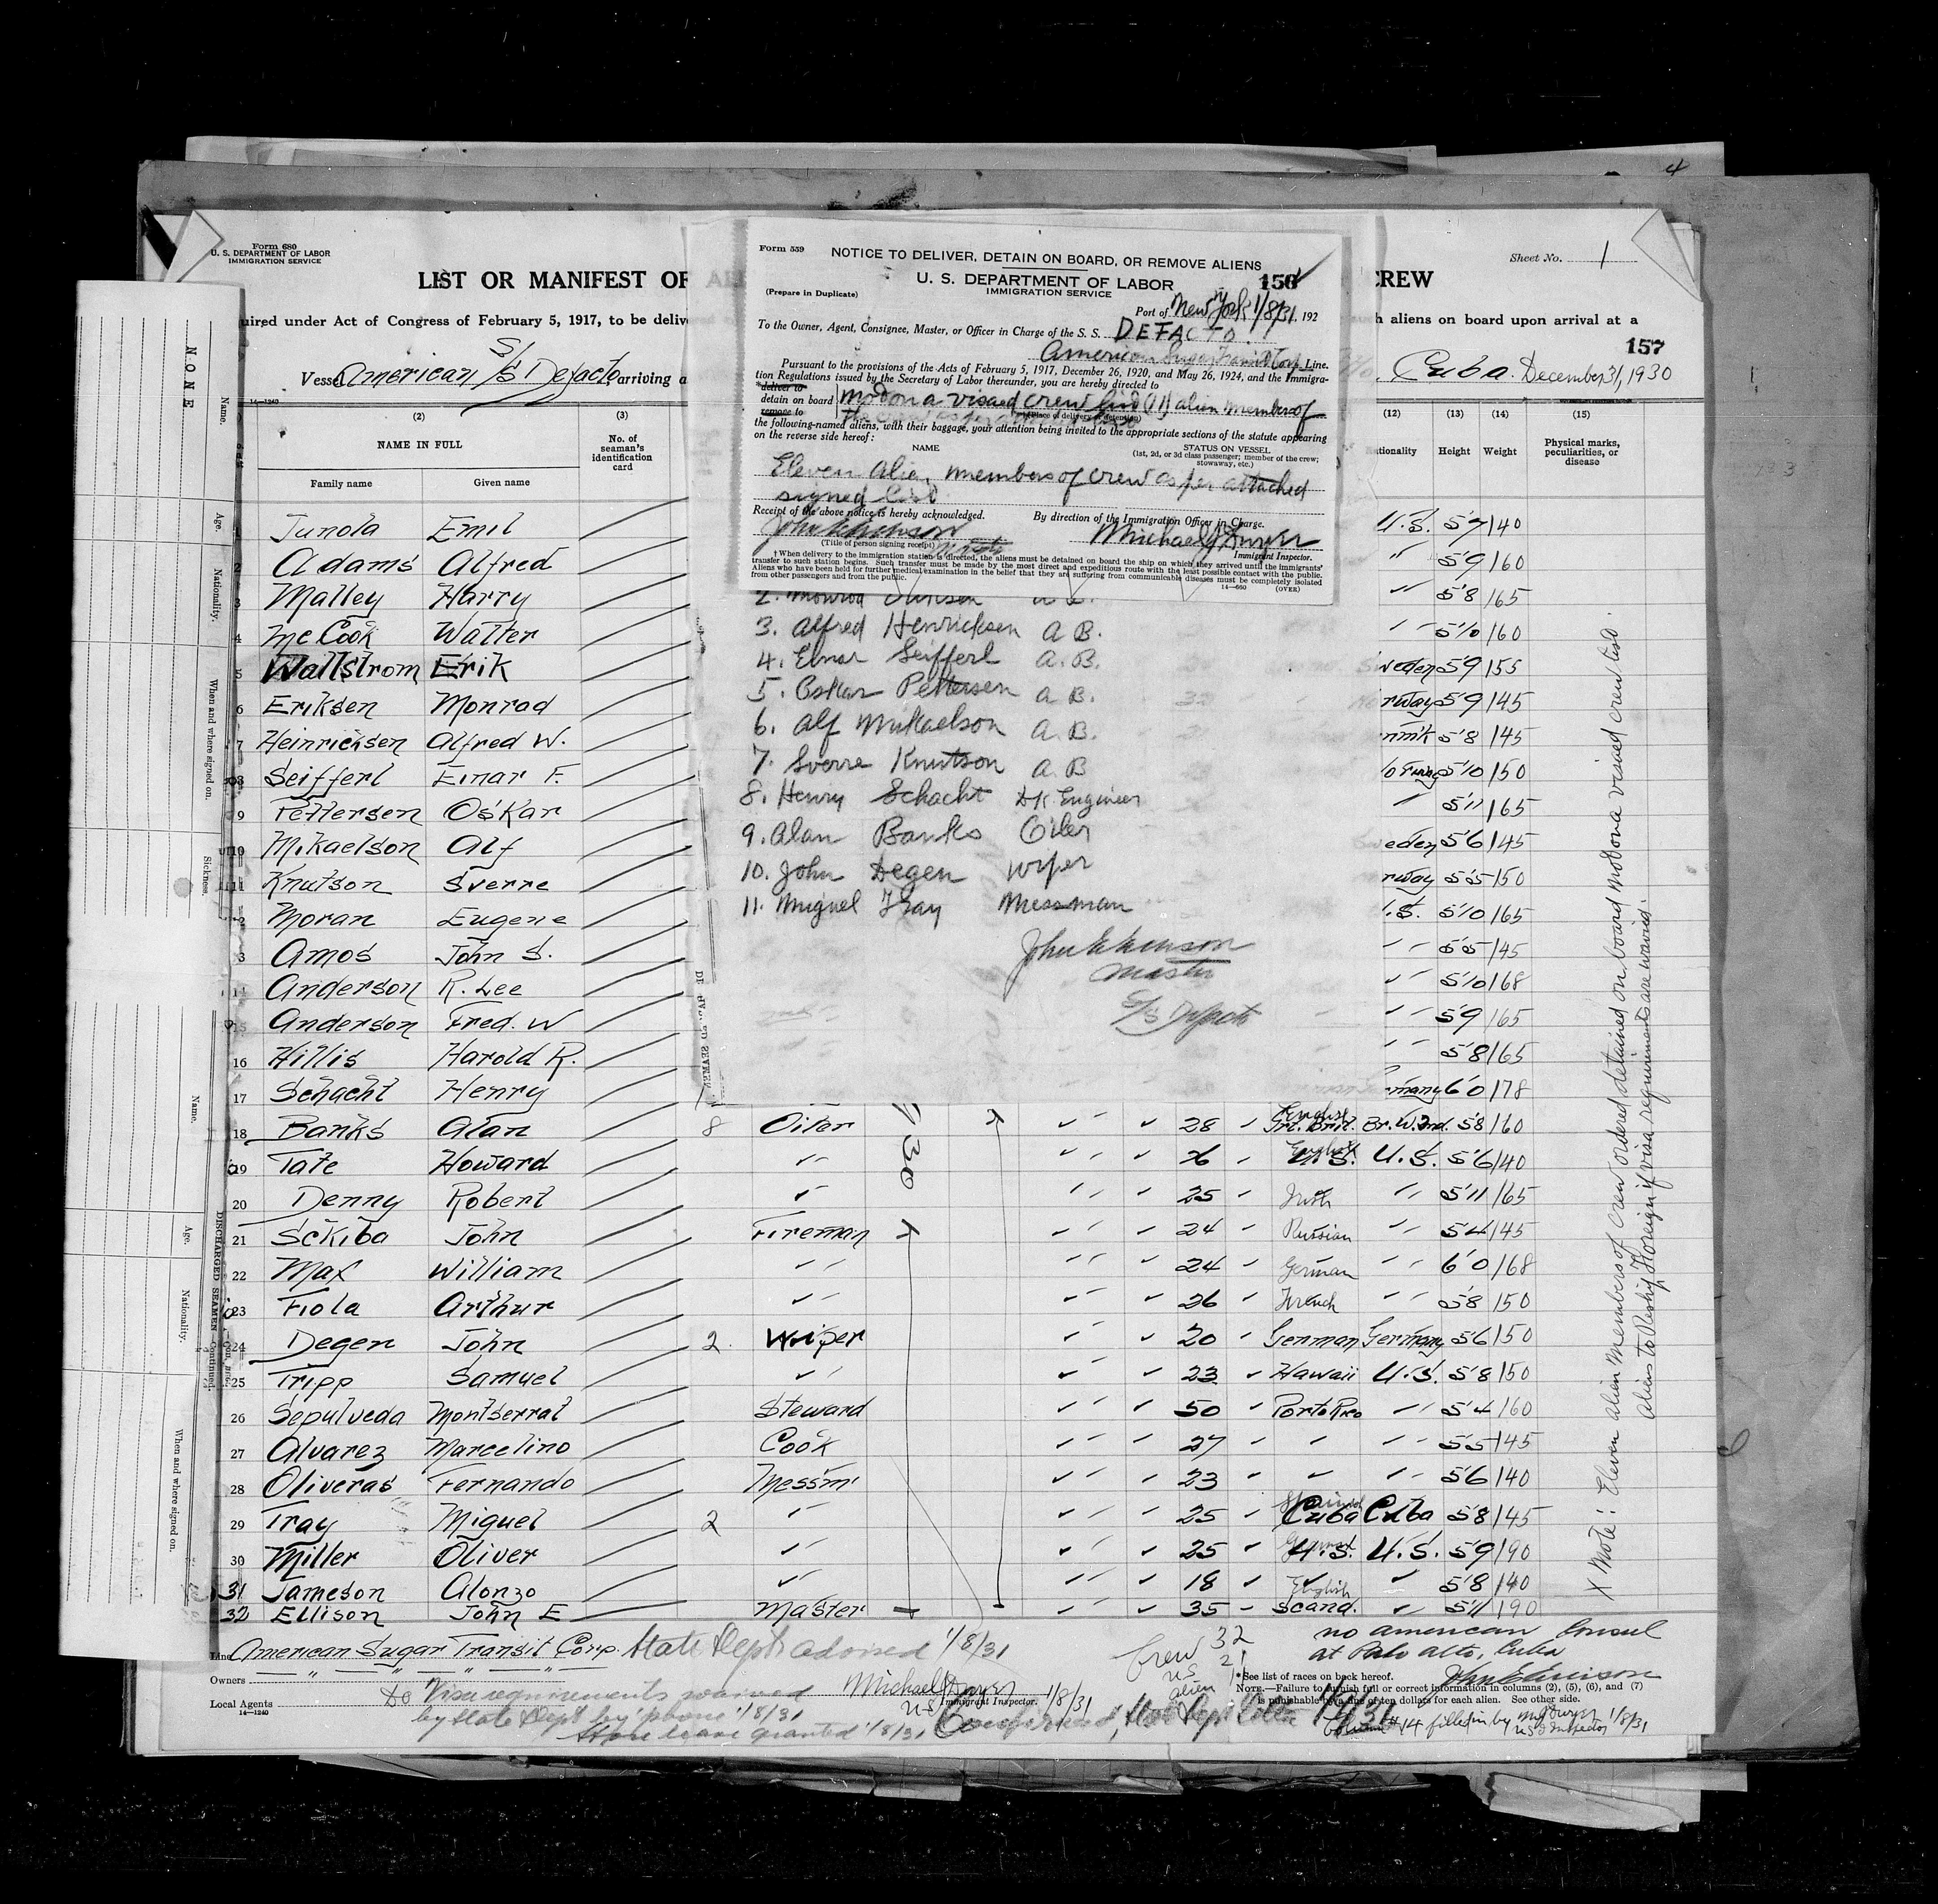 Form 680
U. S. DEPARTMENT OF LABOR
IMMIGRATION SERVICE
Sheet No. 1
LIST OR MANIFEST OF AL
CREW
uired under Act of Congress of February 5, 1917, to be delive
h aliens on board upon arrival at a
157
Vessel American S/S Defacto arriving a
Cuba. December 31, 1930
14—1240
(2)
(3)
(12) (13) (14) (15)
NAME IN FULL
No. of seaman's identification card
Family name Given name
tionality Height Weight Physical marks, peculiarities, or disease
Form 559
NOTICE TO DELIVER, DETAIN ON BOARD, OR REMOVE ALIENS
U. S. DEPARTMENT OF LABOR
IMMIGRATION SERVICE
156
(Prepare in Duplicate)
Port of New York 1/8/31. 192
To the Owner, Agent, Consignee, Master, or Officer in Charge of the S. S. DEFACTO
American Sugar Transit Corp. Line.
Pursuant to the provisions of the Acts of February 5, 1917, December 26, 1920, and May 26, 1924, and the Immigra-
tion Regulations issued by the Secretary of Labor thereunder, you are hereby directed to
*deliver to
detain on board
remove to
(11) alien members of
(Place of delivery or detention)
the following-named aliens, with their baggage, your attention being invited to the appropriate sections of the statute appearing
on the reverse side hereof:
NAME STATUS ON VESSEL
(1st, 2d, or 3d class passenger; member of the crew;
stowaway, etc.)
Eleven alien members of crew as per attached
signed list
Receipt of the above notice is hereby acknowledged.
By direction of the Immigration Officer in Charge.
Michael J Dwyer
(Title of person signing receipt)
Immigrant Inspector.
† When delivery to the immigration station is directed, the aliens must be detained on board the ship on which they arrived until the immigrants'
transfer to such station begins. Such transfer must be made by the most direct and expeditious route with the least possible contact with the public.
Aliens who have been held for further medical examination in the belief that they are suffering from communicable diseases must be completely isolated
from other passengers and from the public.
14—660 (OVER)
3. Alfred Henricksen A.B.
4. Einar Seifferl A.B.
5. Oskar Pettersen A.B.
6. Alf Mikaelson A.B.
7. Sverre Knutson A.B
8. Henry Schacht Dk. Engineer
9. Alan Banks Oiler
10. John Degen Wiper
11. Miguel Tray Messman
Master
S/S Defacto
Junola Emil U.S. 5'7 140
2 Adams Alfred " 5'9 160
3 Malley Harry " 5'8 165
4 McCook Walter " 5'10 160
5 Wallstrom Erik Sweden 5'9 155
6 Eriksen Monrad rway 5'9 145
7 Heinrichsen Alfred W. nmk 5'8 145
8 Seifferl Einar F. 5'10 150
9 Pettersen Oskar " 5'11 165
10 Mikaelson Alf eden 5'6 145
11 Knutson Sverre rway 5'5 150
2 Moran Eugene .S. 5'10 165
3 Amos John S. " 5'5 145
14 Anderson R. Lee " 5'10 168
15 Anderson Fred. W 5'9 165
16 Hillis Harold R. " 5'8 165
17 Schacht Henry many 6'0 178
18 Banks Alan 8 Oiler 28 Grt. Brit. Br. W. Ind. 5'8 160
19 Tate Howard " 26 English U.S. 5'6 140
20 Denny Robert " 25 Irish " 5'11 165
21 Sckiba John Fireman 24 Russian " 5'4 145
22 Max William " 24 German " 6'0 168
23 Fiola Arthur " 26 French " 5'8 150
24 Degen John 2 Wiper 20 German Germany 5'6 150
25 Tripp Samuel " 23 Hawaii U.S. 5'8 150
26 Sepulveda Montserrat Steward 50 Porto Rico " 5'4 160
27 Alvarez Marcelino Cook 27 " " 5'5 145
28 Oliveras Fernando Messm 23 " " 5'6 140
29 Tray Miguel 2 " 25 Spanish Cuba Cuba 5'8 145
30 Miller Oliver " 25 U.S. U.S. 5'9 190
31 Jameson Alonzo " 18 English " 5'8 140
32 Ellison John E Master 35 Scand. " 5'11 190
X Note: Eleven alien members of crew ordered detained on board
Line American Sugar Transit Corp.
Owners " " " "
Local Agents
14—1240
State Dept advised 1/8/31
Visa requirements waived
by State Dept by phone 1/8/31
Shore leave granted 1/8/31
Michael J Dwyer
Immigrant Inspector. 1/8/31
Crew 32
US 21
alien 11
no american Consul
at Palo Alto, Cuba
*See list of races on back hereof.
NOTE.—Failure to furnish full or correct information in columns (2), (5), (6), and (7)
is punishable by a fine of ten dollars for each alien. See other side.
Column #14 filled in by
1/8/31
NONE
Name.
Age.
Nationality.
When and where signed on.
Sickness.
Name.
Age.
Nationality.
When and where signed on.
DISCHARGED SEAMEN—Continued.